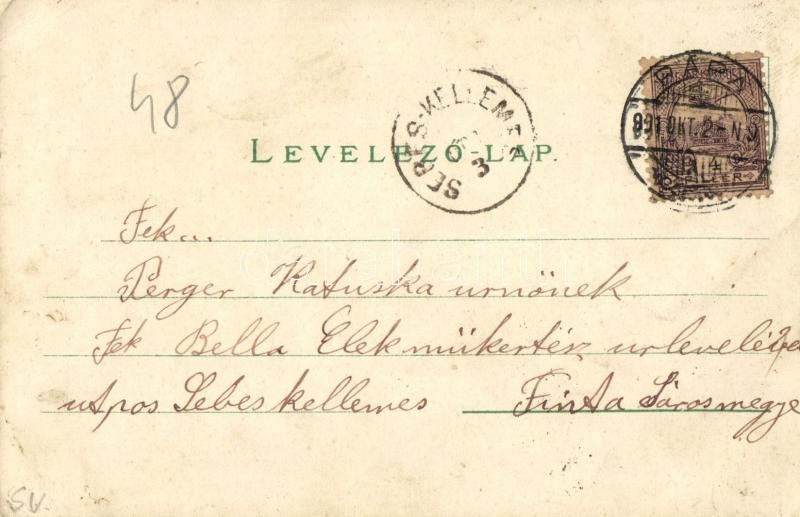 48
LEVELEZŐ-LAP.
SEBES-KELLEMES
3
PÁPA
991 OKT. 2 - N
Tek...
Perger Katuska urnőnek
Tek Bella Elek műkertész ur levelével
utpos Sebeskellemes Finta Sárosmegye
SV